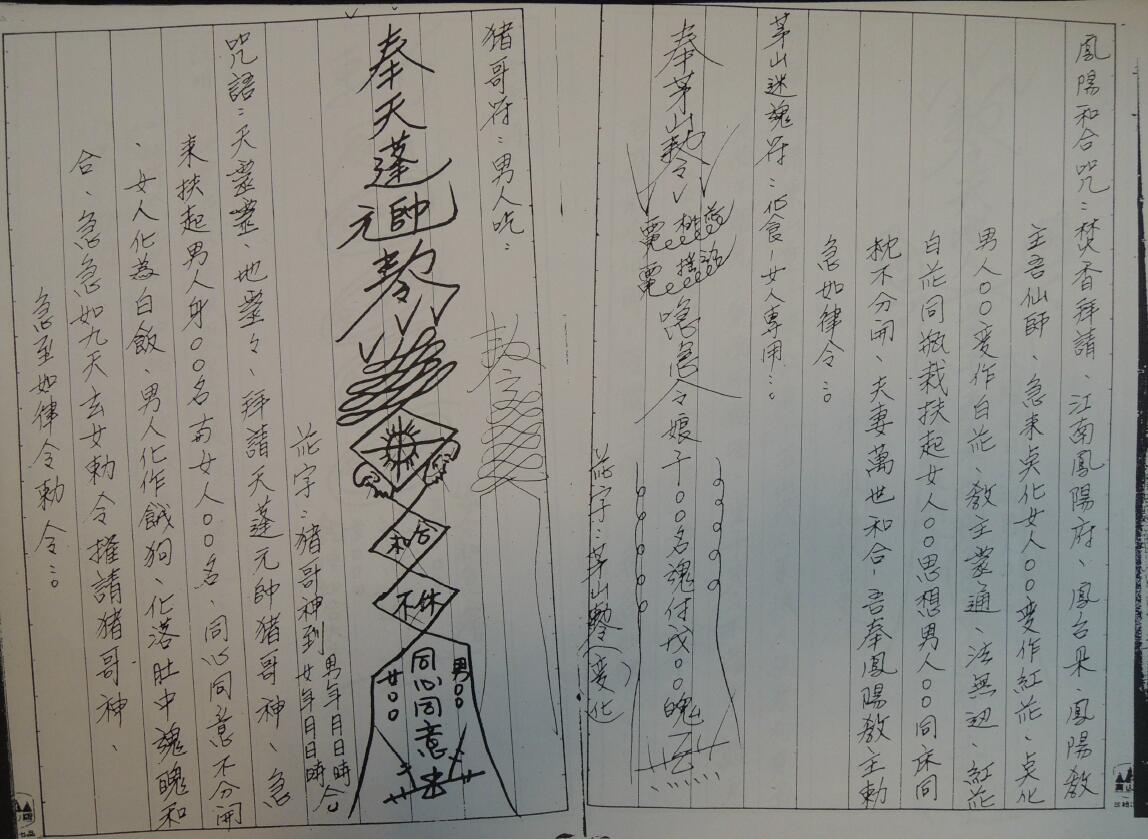 鳳陽和合咒：焚香拜請、江南鳳陽府、鳳台果、鳳陽教
主吾仙師、急來点化女人〇〇变作紅花、点化
男人〇〇变作白花、教主靈通、法無边、紅花
白花同瓶栽扶起女人〇〇思想男人〇〇同床同
枕不分開、夫妻萬世和合、吾奉鳳陽教主勅
急如律令：。
茅山迷魂符：化食－女人專用：。
奉茅山勅令
急急令娘子〇〇名魂付戏〇〇魄
花字：茅山勅令（变化）
猪哥符：男人吃：
奉天蓬元帥勅令
和合
不休
男〇〇
同心同意
女〇〇
花字：猪哥神到
男年月日時
女年月日時
合。
咒語：天靈靈、地靈々、拜請天蓬元帥猪哥神、急
来扶起男人身〇〇名与女人〇〇名、同心同意不分開
、女人化為白飯、男人化作餓狗、化落肚中魂魄和
合、急急如九天玄女勅令催請猪哥神、
急至如律令勅令：。